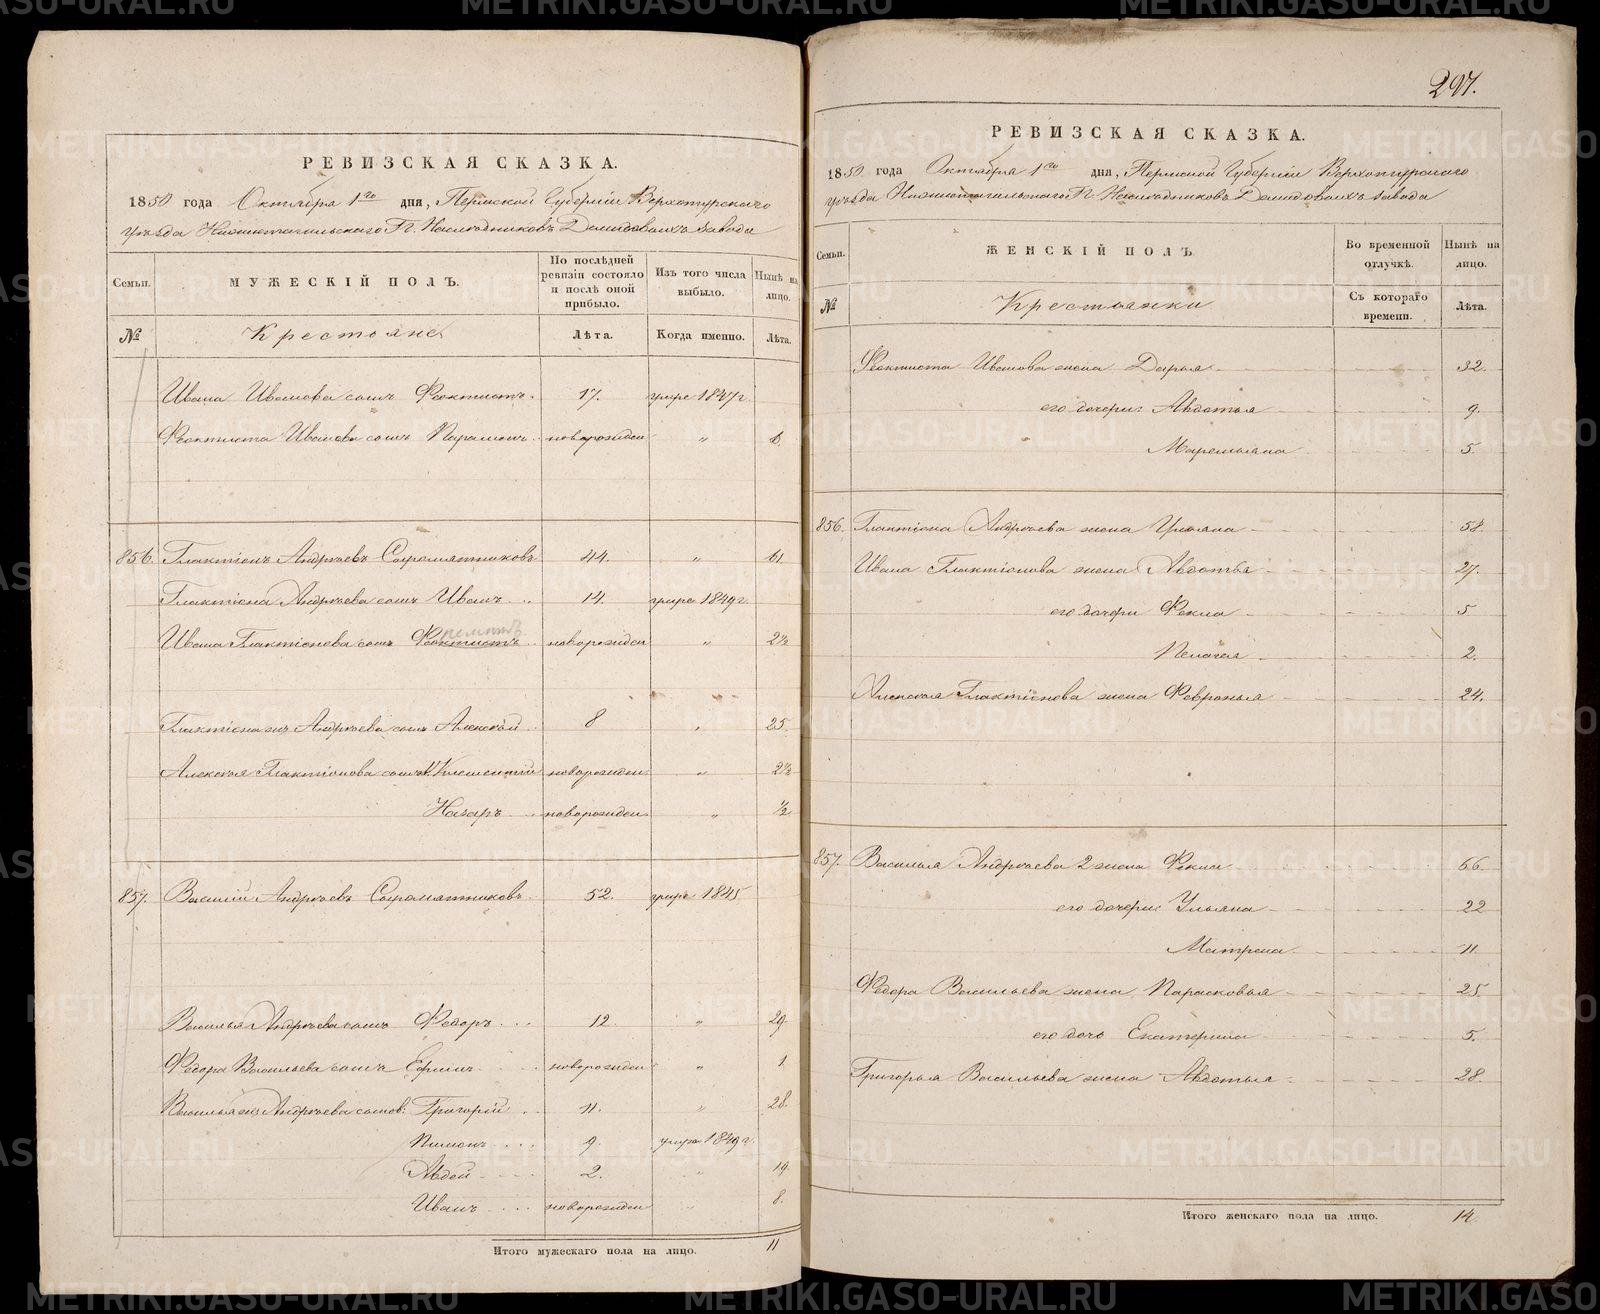 РЕВИЗСКАЯ СКАЗКА.
1850 года Октября 1го дня, Пермской Губернiи Верхотурскаго
уезда Нижнетагильскаго Г. Наследниковъ Демидовыхъ завода
Семьи.
МУЖЕСКIЙ ПОЛЪ.
По последней ревизiи состояло и после оной прибыло.
Изъ того числа выбыло.
Ныне на лицо.
№
Крестьяне
Лета.
Когда именно.
Лета.
Ивана Иванова сынъ Феоктистъ 17. умре 1847г
Феоктиста Иванова сынъ Парамонъ новорожден " 6.
856. Галактiонъ Андреевъ Сыромятниковъ 44. " 61
Галактiона Андреева сынъ Иванъ 14. умре 1849г.
Ивана Галактiонова сынъ Феоктистъ новорожден " 2½
Галактiона жъ Андреева сынъ Алексей 8 " 25.
Алексея Галактiонова сынъ Клементiй новорожден " 2½
Назаръ новорожден " ½
857. Василiй Андреевъ Сыромятниковъ 52. умре 1845
Василья Андреева сынъ Федоръ 12 " 29.
Федора Васильева сынъ Ефимъ новорожден " 1
Василья жъ Андреева сынов: Григорiй 11. " 28.
Пименъ 9. умре 1849г.
Авдей 2. " 19
Иванъ новорожден " 8.
Итого мужескаго пола на лицо. 11
297.
РЕВИЗСКАЯ СКАЗКА.
1850 года Октября 1го дня, Пермской Губернiи Верхотурскаго
уезда Нижнетагильскаго Г. Наследниковъ Демидовыхъ завода
Семьи.
ЖЕНСКIЙ ПОЛЪ
Во временной отлучкѣ.
Нынѣ на лицо.
№
Крестьянки
Съ котораго времени.
Лѣта.
Феоктиста Иванова жена Дарья 32.
его дочери: Авдотья 9.
Маремьяна 5.
856. Галактiона Андреева жена Ульяна 58.
Ивана Галактiонова жена Авдотья 27.
его дочери Фекла 5
Пелагея 2.
Алексея Галактiонова жена Февронья 24.
857. Василья Андреева 2 жена Фекла 66.
его дочери: Ульяна 22
Матрена 11.
Федора Васильева жена Парасковья 25.
его дочь Екатерина 5.
Григорья Васильева жена Авдотья 28.
Итого женскаго пола на лицо. 14.
METRIKI.GASO-URAL.RU